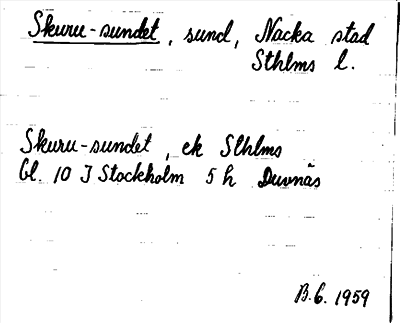 Skuru-sundet, sund, Nacka stad
Sthlms l.
Skuru-sundet, ek Sthlms
bl. 10 I Stockholm 5 h Duvnäs
B.G. 1959